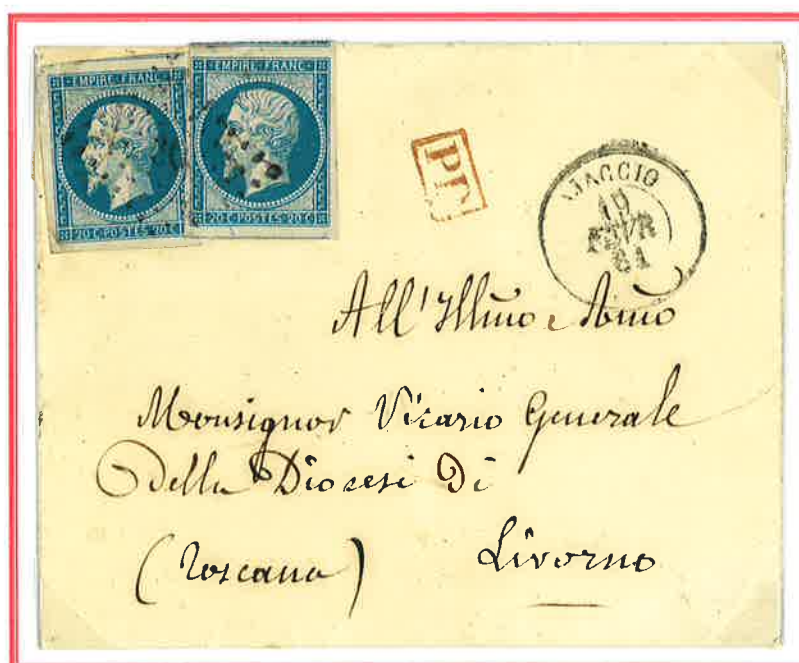 EMPIRE FRANC.
20 C. POSTES 20 C.
EMPIRE FRANC.
20 C. POSTES 20 C.
AJACCIO
19
FEVR
61
All'Illmo e Rmo
Monsignor Vicario Generale
della Diocesi Di
(Toscana) Livorno